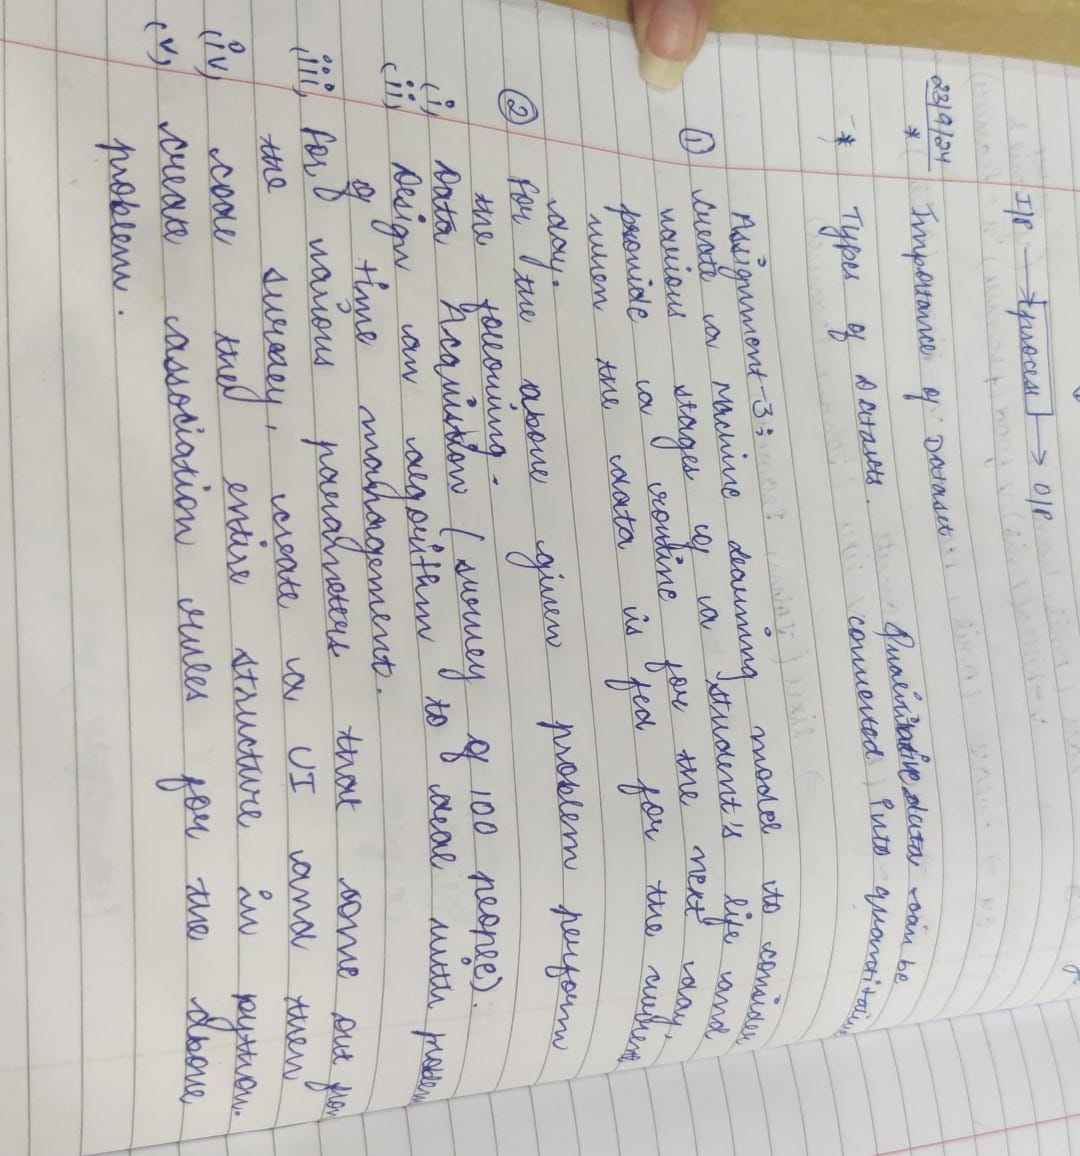 I/P → process → O/P
23/9/24
* Importance of Dataset
* Types of Datasets. Qualitative data can be
converted into quantitative
Assignment-3:
① Create a Machine learning model to consider
various stages of a student's life and
provide a routine for the next day,
when the data is fed for the current
day.
② for the above given problem perform
the following.
(i) Data Acquistion (survey of 100 people).
(ii) Design an algorithm to deal with problem
of time management.
(iii) for various parameters that come out from
the survey, create a UI and then
(iv) code the entire structure in python.
(v) create association rules for the above
problem.